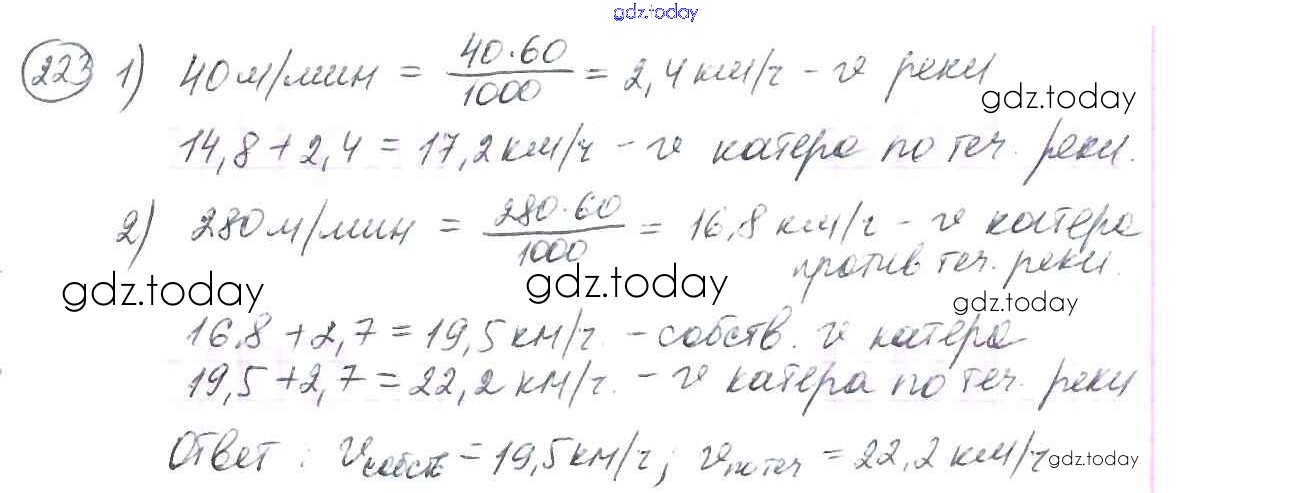 gdz.today
223 1) 40 м/мин = 40·60/1000 = 2,4 км/ч - v реки
gdz.today
14,8 + 2,4 = 17,2 км/ч - v катера по теч. реки.
2) 280 м/мин = 280·60/1000 = 16,8 км/ч - v катера
против теч. реки.
gdz.today gdz.today gdz.today
16,8 + 2,7 = 19,5 км/ч. - собств. v катера
19,5 + 2,7 = 22,2 км/ч. - v катера по теч. реки
Ответ: v собств = 19,5 км/ч; v по теч = 22,2 км/ч
gdz.today